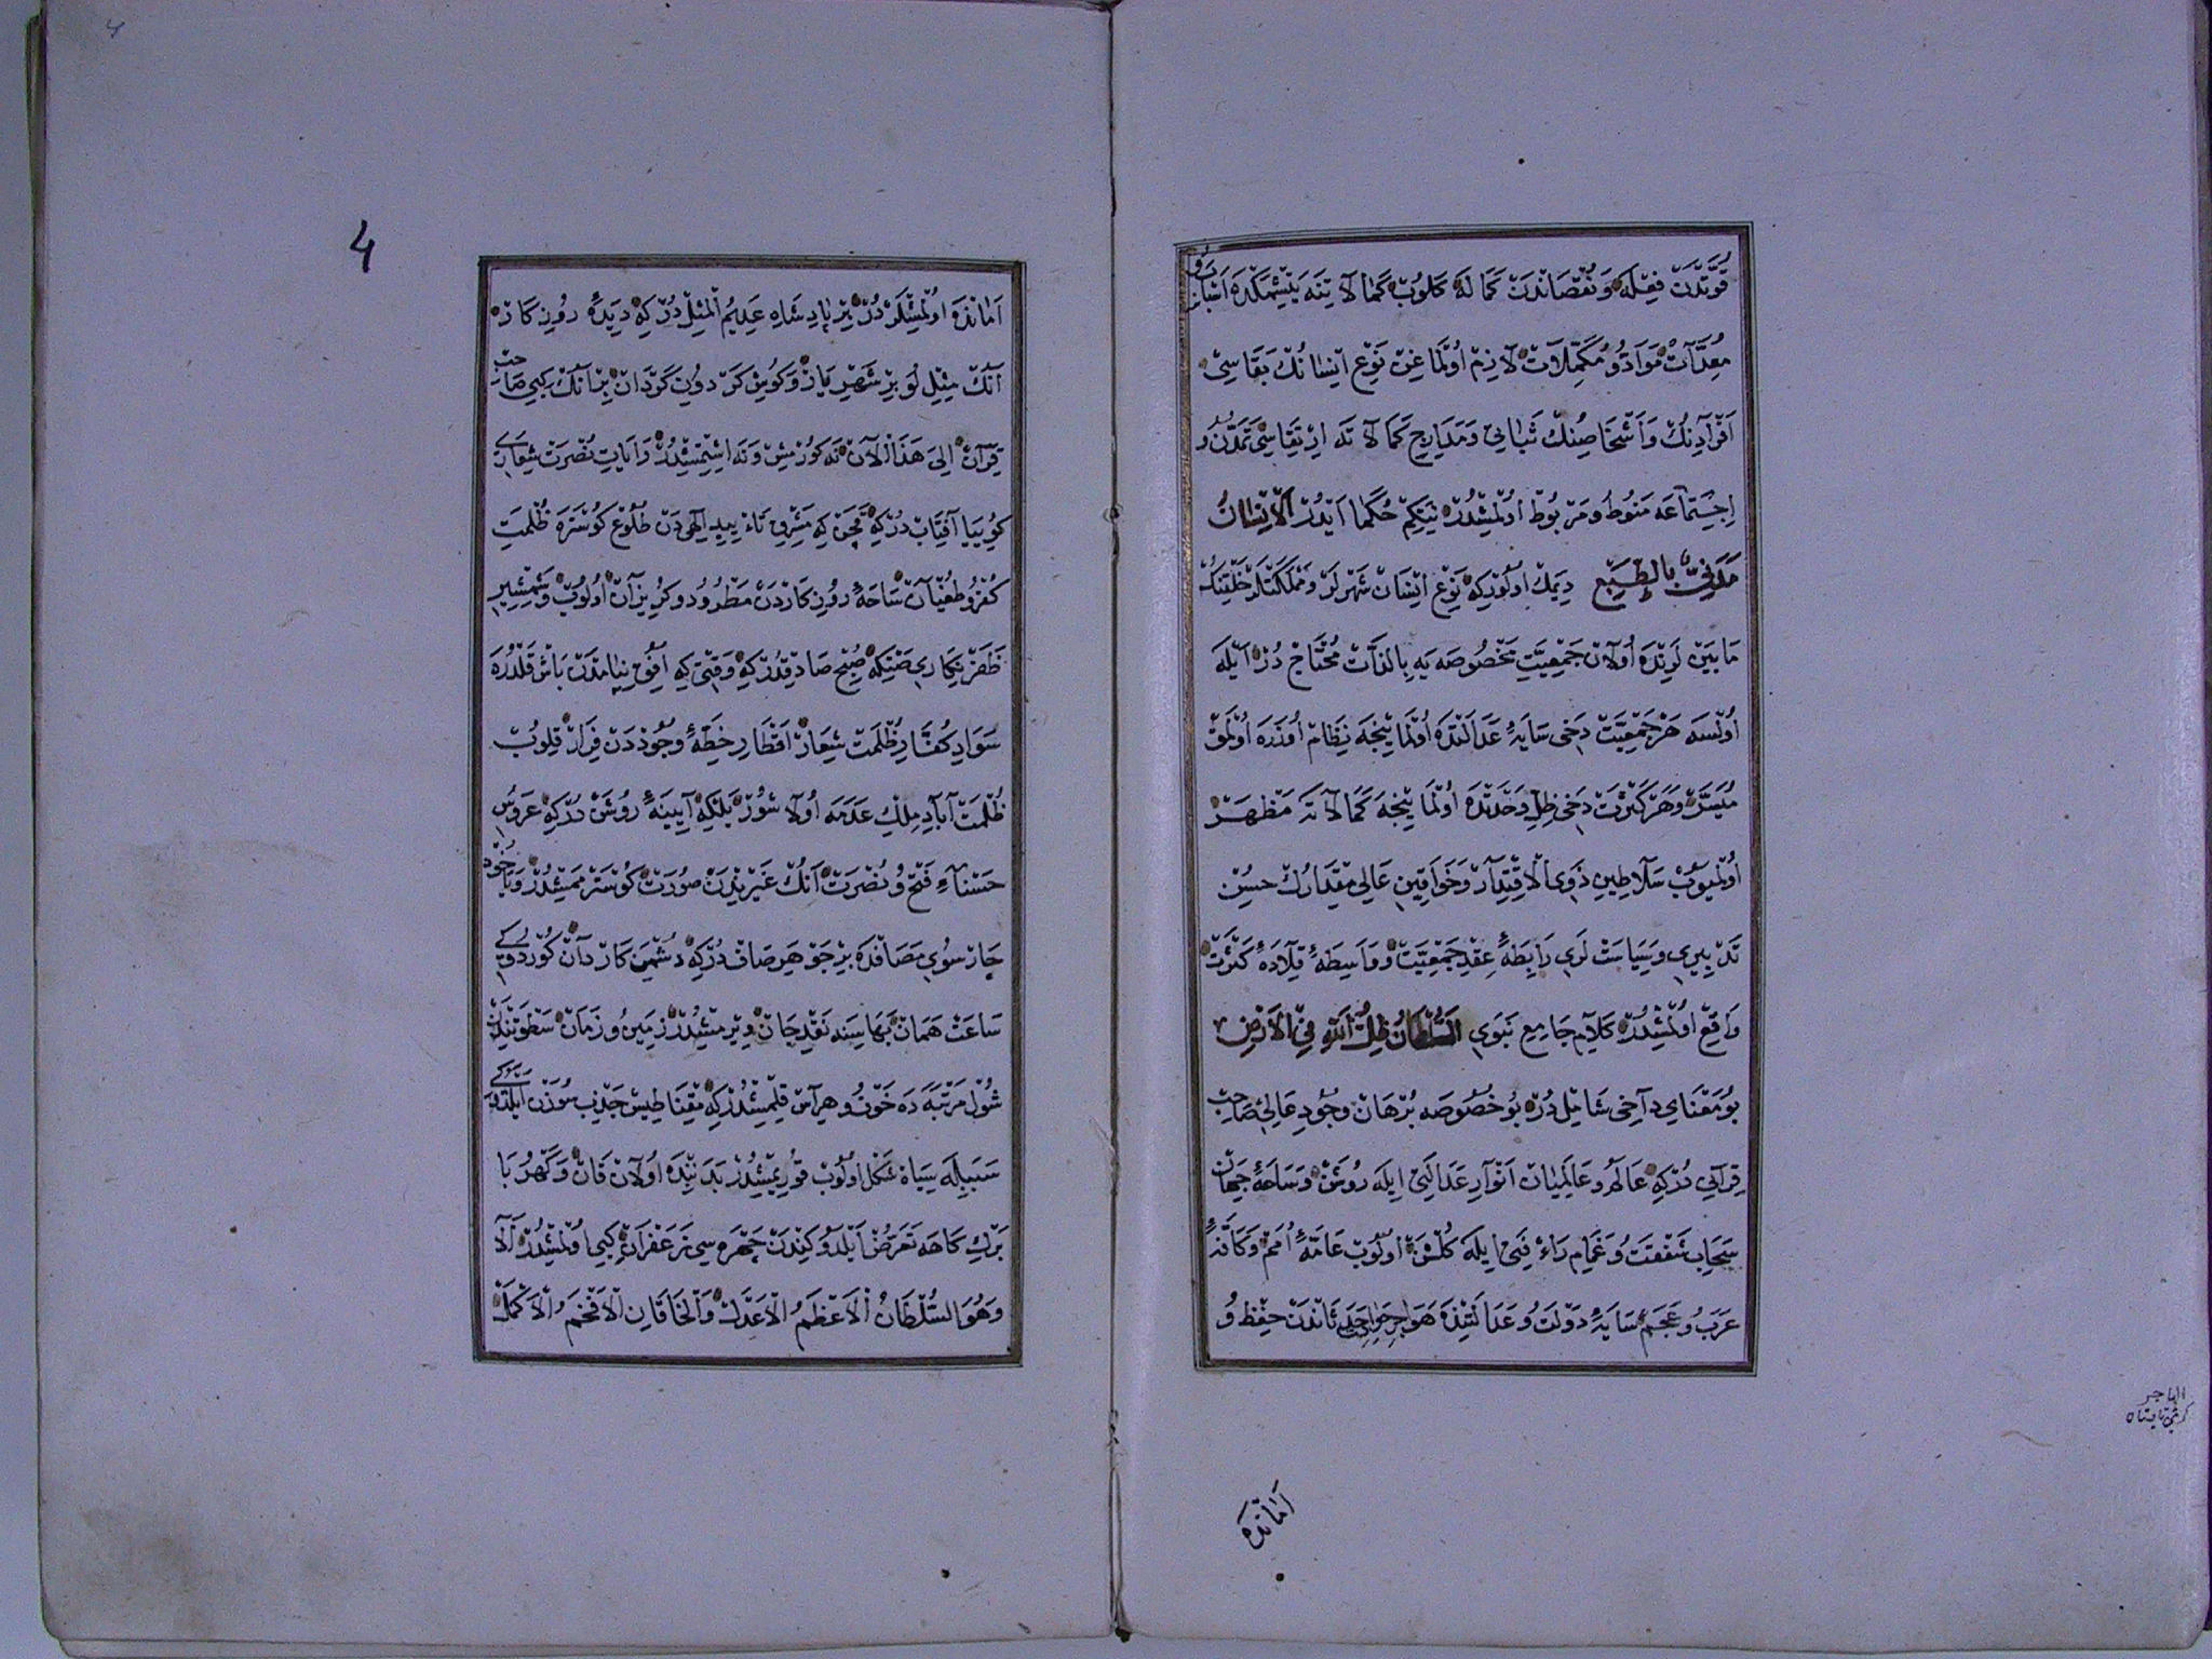 قُوَّتْدَنْ فِعْلَه وَ نُقْصَانْدَنْ كَمَالَه كَلُوبْ كَمَالَاتِنَه يَتِيشْمَكْدَه اَسْبَابْ وُ
مُعِدَّاتْ مَوَادُّ وُ مُكَمِّلَاتْ لَازِمْ اُولْمَاغِنْ نَوْعِ اِنْسَانُكْ بَقَاسِى
اَفْرَادِنُكْ وَ اَشْخَاصِنُكْ ثَبَاتِى وَ مَدَارِجِ كَمَالَاتَه اِرْتِقَاسِى تَمَدُّنُ وُ
اِجْتِمَاعَه مَنُوطْ و مَرْبُوطْ اُولْمِشْدُرْ نِتَكِمْ حُكَمَا اَيْدُرْ اَلْاِنْسَانُ
مَدَنِىٌّ بِالطَّبْعِ دِيمَكْ اُولُورْكِه نَوْعِ اِنْسَانْ شَهْرلَرْ و مَمْلَكَتْلَرْ خَلْقِنَكْ
مَابَيْنْ لَرِنْدَه اُولَانْ جَمْعِيَّتِ مَخْصُوصَه يَه بِالذَّاتْ مُحْتَاجْ دُرْ اَيْلَه
اُولْسَه هَرْ جَمْعِيَّتْ دَخِى سَايَهٔ عَدَالَتْدَه اُولْمَايِنْجَه نِظَامْ اُوزَرَه اُولْمَقْ
مُيَسَّرْ وَ هَرْ كَثْرَتْ دَخِى ظِلِّ وَحْدَتْدَه اُولْمَايِنْجَه كَمَالَاتَه مَظْهَرْ
اُولْمَيُوبْ سَلَاطِينِ ذَوِى الْاِقْتِدَارْ وَ خَوَاقِينِ عَالِى مِقْدَارُكْ حُسْنِ
تَدْبِيرِى و سِيَاسَتْ لَرِى رَابِطَهٔ عِقْدِ جَمْعِيَّتْ وَ وَاسِطَهٔ قِلَادَهٔ كَثْرَتْ
وَاقِعْ اُولْمِشْدُرْ كَلَامِ جَامِعِ نَبَوِى اَلسُّلْطَانُ ظِلُّ اللهِ فِى الْاَرْضِ
بُو مَعْنَايِ دَاخِى شَامِلْ دُرْ بُو خُصُوصَه بُرْهَانْ وُجُودِ عَالِئِ صَاحِبْ
قِرَانِى دُرْكِه عَالَمْ و عَالَمِيَانْ اَنْوَارِ عَدَالَتِى اِيلَه رُوشَنْ وَ سَاحَهٔ جِهَانْ
سَحَابِ شَفْقَتْ وُ غَمَامِ رَاءْفَتِى اِيلَه كُلْشَنْ اُولُوبْ عَامَّهٔ اُمَمْ وَ كَافَّهٔ
عَرَبْ وُ عَجَمْ سَايَهٔ دَوْلَتْ وُ عَدَالَتِنْدَه هَوَاجِرِ حَدَثَانْدَنْ حِفْظْ وُ
اَمَانْدَه
4
اَمَانْدَه اُولْمِشْلَرْدُرْ بِرْ پَادِشَاهِ عَدِيمُ الْمِثِلْ دُرْكِه دِيدَهٔ رُوزِكَارْ
اَنُكْ مِثْلِ لُو بِرْ شَهْرِيَارْ وَ كُوشِ كَرْدُونِ كَرْدَانْ بِرْ اَنُكْ كِبِى صَاحِبْ
قِرَانْ اِلَى هَذَا الْاٰنْ نَه كُورْمِشْ وَ نَه اِشِتْمِشْدُرْ رَايَاتِ نُصْرَتْ شِعَارِى
كُويِيَا آفِتَابْ دُرْكِه قَچَنْ كِه مَشْرِقِ تَاءْيِيدِ اِلٰهِى دَنْ طُلُوعْ كُوسْتَرَه ظُلْمَتِ
كُفْرُ و طُغْيَانْ سَاحَهٔ رُوزِكَارْدَنْ مَطْرُودُ و كُرِيزَانْ اُولُوبْ وَ شَمْشِيرِ
ظَفَرْ نِكَارِى ضَنِكِه صُبْحِ صَادِقْدُرْكِه وَقْتِى كِه اُفُقِ نِيَامْدَنْ بَاشْ قَلْدُرَه
سَوَادِ كُفَّارِ ظُلْمَتْ شِعَارْ اَقْطَارِ خِطَّهٔ وُجُودْدَنْ فِرَارْ قِلُوبْ
ظُلْمَتْ آبَادِ مِلْكِ عَدَمَه اُولَاشُورْ بَلْكِه آيِينَهٔ رُوشَنْ دُرْكِه عَرُوسِ
حَسْنَآءِ فَتْحُ وُ نُصْرَتْ اَنُكْ غَيْرِنْدَنْ صُورَتْ كُوسْتَرْمَمِشْدُرْ وَيَاخُودْ
چَارْ سُوىِ مَصَافْدَه بِرْ جَوْهَرِ صَافْ دُرْكِه دُشْمَنِ كَارْدَانْ كُورْدُوكِى
سَاعَتْ هَمَانْ بَهَاسِنَه نَقْدِ جَانْ وِيرْمِشْدُرْ زَمِينُ وُ زَمَانْ سَطْوَتِنْدَنْ
شُولْ مَرْتَبَه دَه خَوْفُ و هِرَاسْ قِلْمِشْدُرْكِه مِقْنَاطِيسْ جَذْبِ سُوزَنْ اَيْلَدُوكِى
سَبَبِلَه سِيَاهْ شَكْلْ اُولُوبْ قُورِيمِشْدُرْ بَدَنِنْدَه اُولَانْ قَانْ وَ كَهْرُبَا
بَرْكِ كَاهَه تَعَرُّضْ اَيْلَدُوكِنْدَنْ چَهْرَه سِى زَعْفَرَانْ كِبِى اُولْمِشْدُرْ اَلَا
وَهُوَ السُّلْطَانُ الْاَعْظَمُ الْاَعْدَلْ وَالْخَاقَانِ الْاَفْخَمُ الْاَكْمَلْ